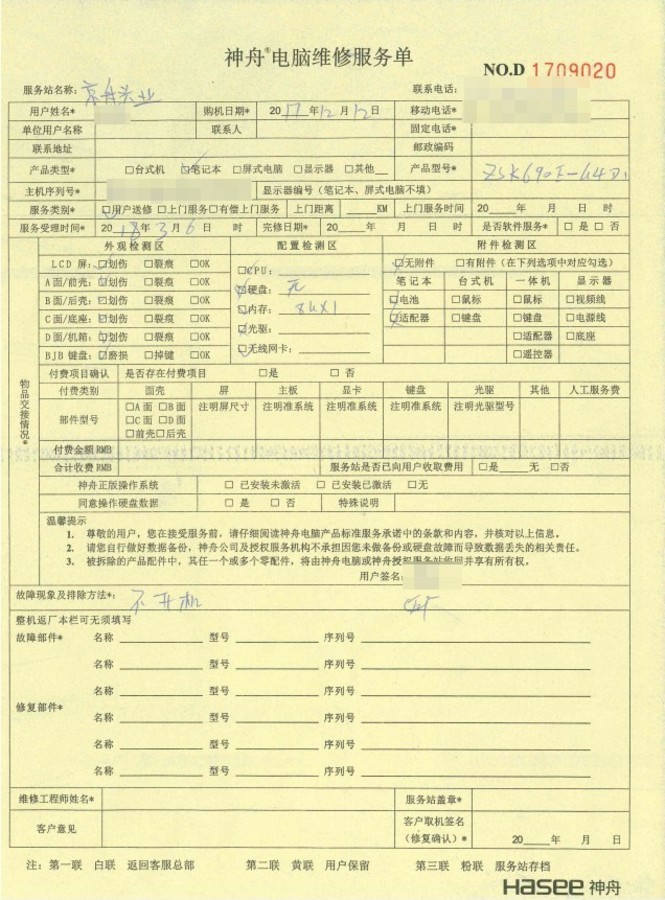 神舟®电脑维修服务单
NO.D 1709020
服务站名称: 京舟兴业 联系电话:
用户姓名* 购机日期* 2017年12月12日 移动电话*
单位用户名称 联系人 固定电话*
联系地址 邮政编码
产品类型* □台式机 □笔记本 □屏式电脑 □显示器 □其他__ 产品型号*
主机序列号* 显示器编号(笔记本、屏式电脑不填)
服务类别* □用户送修 □上门服务 □有偿上门服务 上门距离 ____KM 上门服务时间 20__年 月 日 时
服务受理时间* 2018年3月6日 时 完修日期* 20__年 月 日 时 是否软件服务* □是 □否
物品交接情况*
外观检测区 配置检测区 附件检测区
LCD 屏: □划伤 □裂痕 □OK
A面/前壳: □划伤 □裂痕 □OK
B面/后壳: □划伤 □裂痕 □OK
C面/底座: □划伤 □裂痕 □OK
D面/机箱: □划伤 □裂痕 □OK
BJB 键盘: □磨损 □掉键 □OK
□CPU:
□硬盘: 无
□内存: 8GX1
□光驱:
□无线网卡:
□无附件 □有附件(在下列选项中对应勾选)
笔记本 台式机 一体机 显示器
□电池 □鼠标 □鼠标 □视频线
□适配器 □键盘 □键盘 □电源线
□适配器 □底座
□遥控器
付费项目确认 是否存在付费项目 □是 □否
付费类别 面壳 屏 主板 显卡 键盘 光驱 其他 人工服务费
部件型号 □A面 □B面 □C面 □D面 □前壳□后壳 注明屏尺寸 注明准系统 注明准系统 注明准系统 注明光驱型号
付费金额RMB
合计收费RMB 服务站是否已向用户收取费用 □是____无 □否
神舟正版操作系统 □ 已安装未激活 □ 已安装已激活 □无
同意操作硬盘数据 □ 是 □ 否 特殊说明
温馨提示
1. 尊敬的用户,您在接受服务前,请仔细阅读神舟电脑产品标准服务承诺中的条款和内容,并核对以上信息。
2. 请您自行做好数据备份,神舟公司及授权服务机构不承担因您未做备份或硬盘故障而导致数据丢失的相关责任。
3. 被拆除的产品配件中,其任一个或多个零配件,将由神舟电脑或神舟授权服务站收回并享有所有权。
用户签名:
故障现象及排除方法*: 不开机
整机返厂本栏可无须填写
故障部件* 名称 型号 序列号
名称 型号 序列号
名称 型号 序列号
修复部件* 名称 型号 序列号
名称 型号 序列号
名称 型号 序列号
维修工程师姓名* 服务站盖章*
客户意见 客户取机签名(修复确认)* 20__年 月 日
注: 第一联 白联 返回客服总部 第二联 黄联 用户保留 第三联 粉联 服务站存档
Hasee 神舟